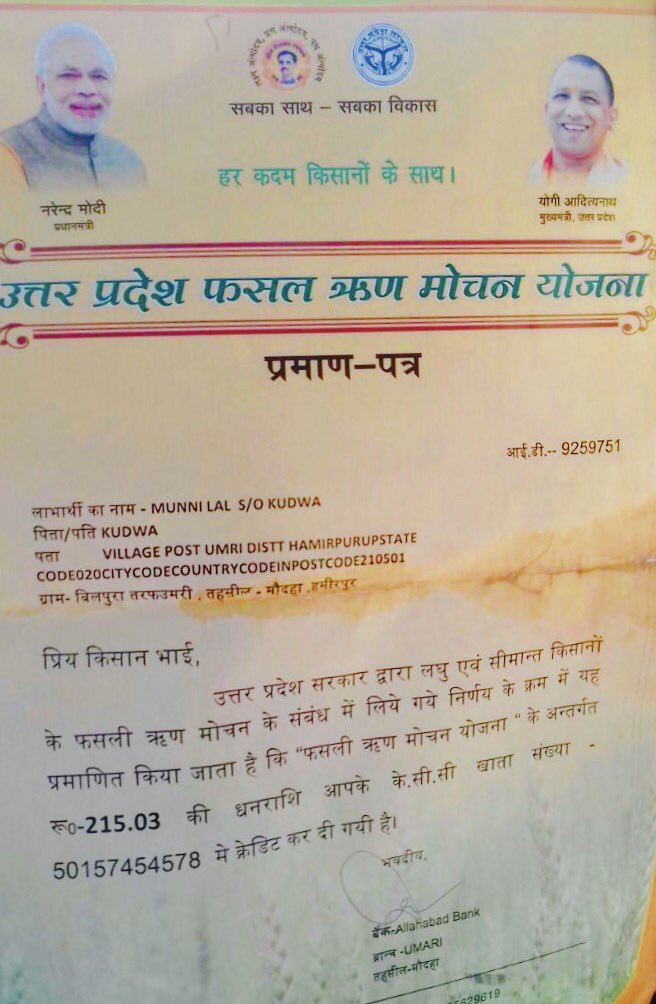 लक्ष्य अन्त्योदय, प्रण अन्त्योदय, पथ अन्त्योदय
उत्तर प्रदेश सरकार
सबका साथ – सबका विकास
हर कदम किसानों के साथ।
नरेन्द्र मोदी
प्रधानमंत्री
योगी आदित्यनाथ
मुख्यमंत्री, उत्तर प्रदेश
उत्तर प्रदेश फसल ऋण मोचन योजना
प्रमाण–पत्र
आई.डी.-- 9259751
लाभार्थी का नाम - MUNNI LAL S/O KUDWA
पिता/पति KUDWA
पता VILLAGE POST UMRI DISTT HAMIRPURUPSTATE
CODE020CITYCODECOUNTRYCODEINPOSTCODE210501
ग्राम- बिलपुरा तरफउमरी , तहसील - मौदहा ,हमीरपुर
प्रिय किसान भाई,
उत्तर प्रदेश सरकार द्वारा लघु एवं सीमान्त किसानों
के फसली ऋण मोचन के संबंध में लिये गये निर्णय के क्रम में यह
प्रमाणित किया जाता है कि "फसली ऋण मोचन योजना " के अन्तर्गत
रू0-215.03 की धनराशि आपके के.सी.सी खाता संख्या -
50157454578 मे क्रेडिट कर दी गयी है।
भवदीय,
बैंक-Allahabad Bank
ब्रान्च -UMARI
तहसील-मौदहा